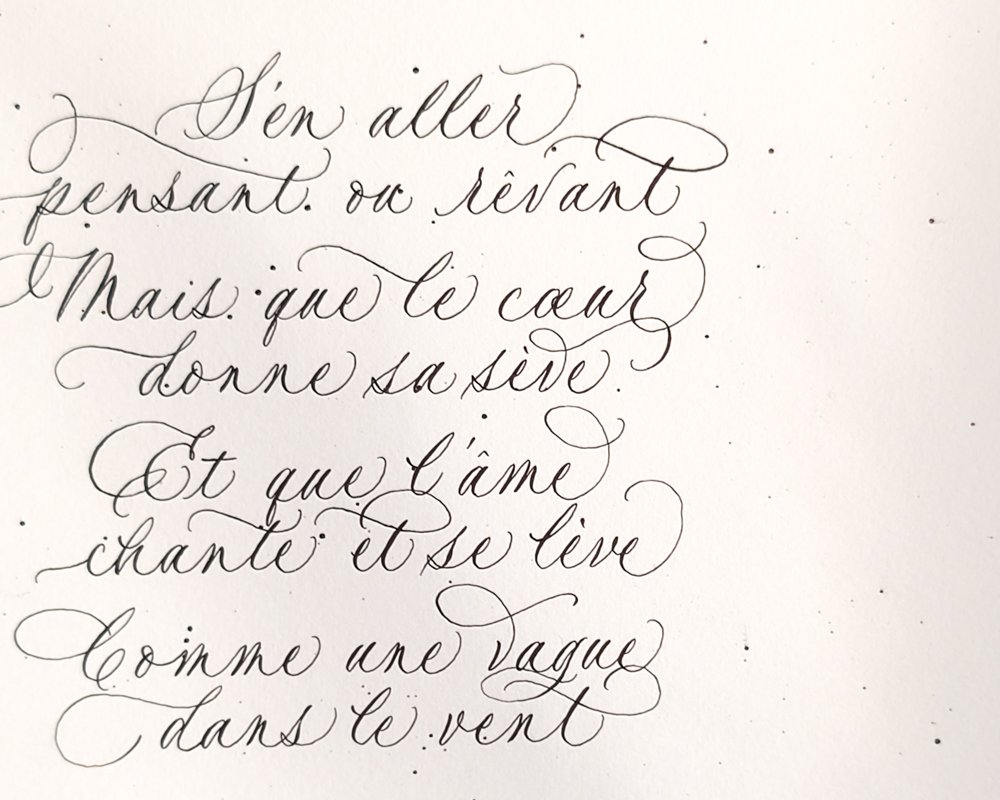 S'en aller
pensant ou rêvant
Mais que le cœur
donne sa sève
Et que l'âme
chante et se lève
Comme une vague
dans le vent